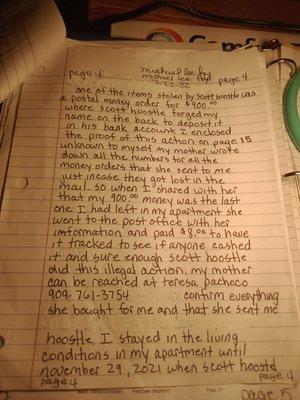 page 4 michael lee page 4
michael lee
one of the items stolen by scott hoostle was
a postal money order for $900.00
where scott hoostle forged my
name on the back to deposit it
in his bank account. I enclosed
the proof of this action on page 15
unknown to myself my mother wrote
down all the numbers for all the
money orders that she sent to me
just incase they got lost in the
mail. so when I shared with her
that my 900.00 money was the last
one I had left in my apartment she
went to the post office with her
imformation and paid $8.00 to have
it tracked to see if anyone cashed
it and sure enough scott hoostle
did this illegal action. my mother
can be reached at teresa pacheco
909-761-3754 confirm everything
she bought for me and that she sent me
hoostle. I stayed in the living
conditions in my apartment until
november 29, 2021 when scott hoostel
page 4 page 4
page 5